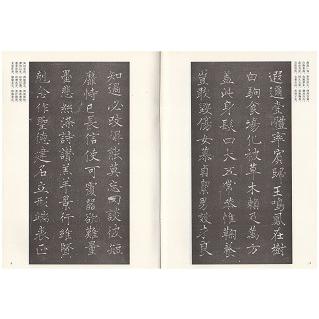 遐邇壹體率賓歸王鳴鳳在樹
白駒食場化被草木賴及萬方
蓋此身髮四大五常恭惟鞠養
豈敢毀傷女慕貞絜男效才良
知過必改得能莫忘罔談彼短
靡恃己長信使可覆器欲難量
墨悲絲染詩讚羔羊景行維賢
剋念作聖德建名立形端表正